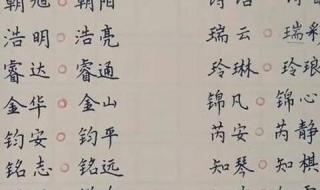 朝旭○朝阳
浩明○浩亮
睿达○睿通
金华○金山
钧安○钧平
铭志○铭远
瑞云○瑞彩
玲琳○玲琅
锦凡○锦心
芮安○芮静
知琴○知棋